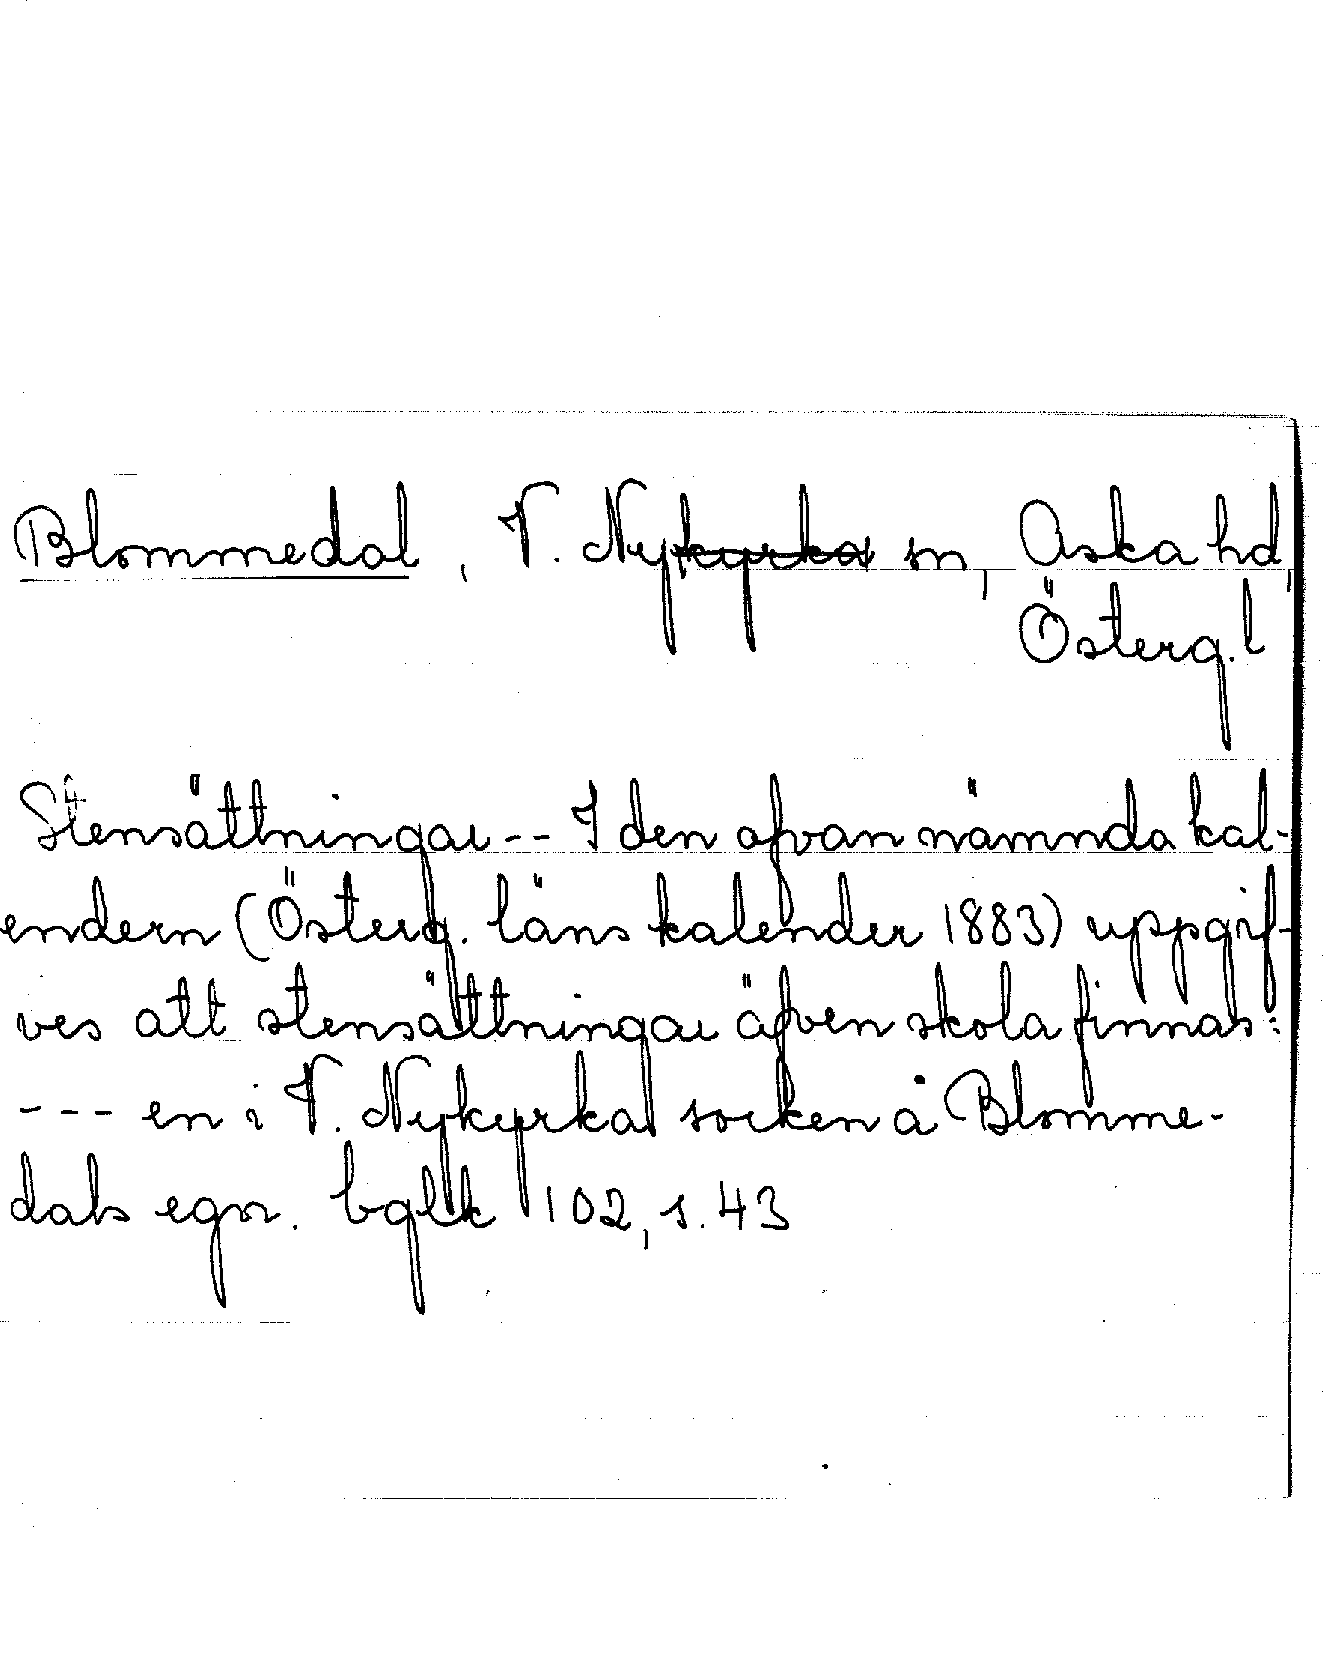 Blommedal, V. Nykyrka sn, Aska hd,
Österg. l
Stensättningar -- I den ofvan nämnda kal-
endern (Österg. läns kalender 1883) uppgif-
ves att stensättningar äfven skola finnas:
--- en i V. Nykyrka socken å Blomme-
dals egor. bglk 102, s. 43